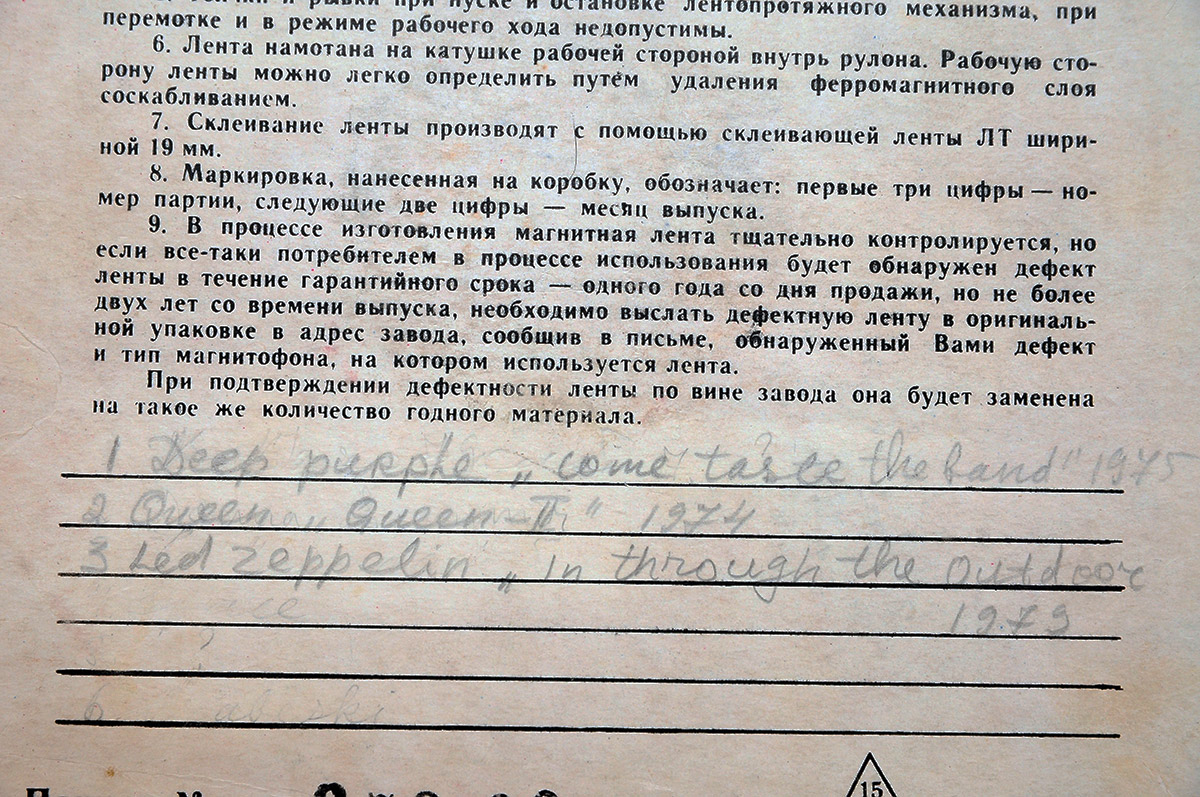 рывки при пуске и остановке лентопротяжного механизма, при
перемотке и в режиме рабочего хода недопустимы.
6. Лента намотана на катушке рабочей стороной внутрь рулона. Рабочую сто-
рону ленты можно легко определить путём удаления ферромагнитного слоя
соскабливанием.
7. Склеивание ленты производят с помощью склеивающей ленты ЛТ шири-
ной 19 мм.
8. Маркировка, нанесенная на коробку, обозначает: первые три цифры — но-
мер партии, следующие две цифры — месяц выпуска.
9. В процессе изготовления магнитная лента тщательно контролируется, но
если все-таки потребителем в процессе использования будет обнаружен дефект
ленты в течение гарантийного срока — одного года со дня продажи, но не более
двух лет со времени выпуска, необходимо выслать дефектную ленту в оригиналь-
ной упаковке в адрес завода, сообщив в письме, обнаруженный Вами дефект
и тип магнитофона, на котором используется лента.
При подтверждении дефектности ленты по вине завода она будет заменена
на такое же количество годного материала.
1 Deep purple „come taste the band" 1975
2 Queen „Queen-II" 1974
3 Led zeppelin „In through the outdoor
1979
6
15